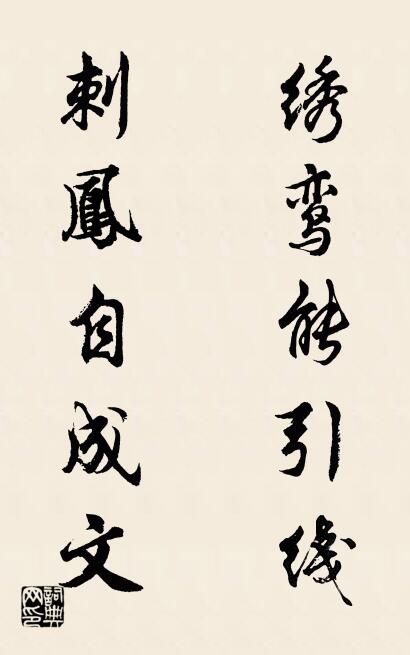 绣鸾能引线
刺鳳自成文
詞典网印